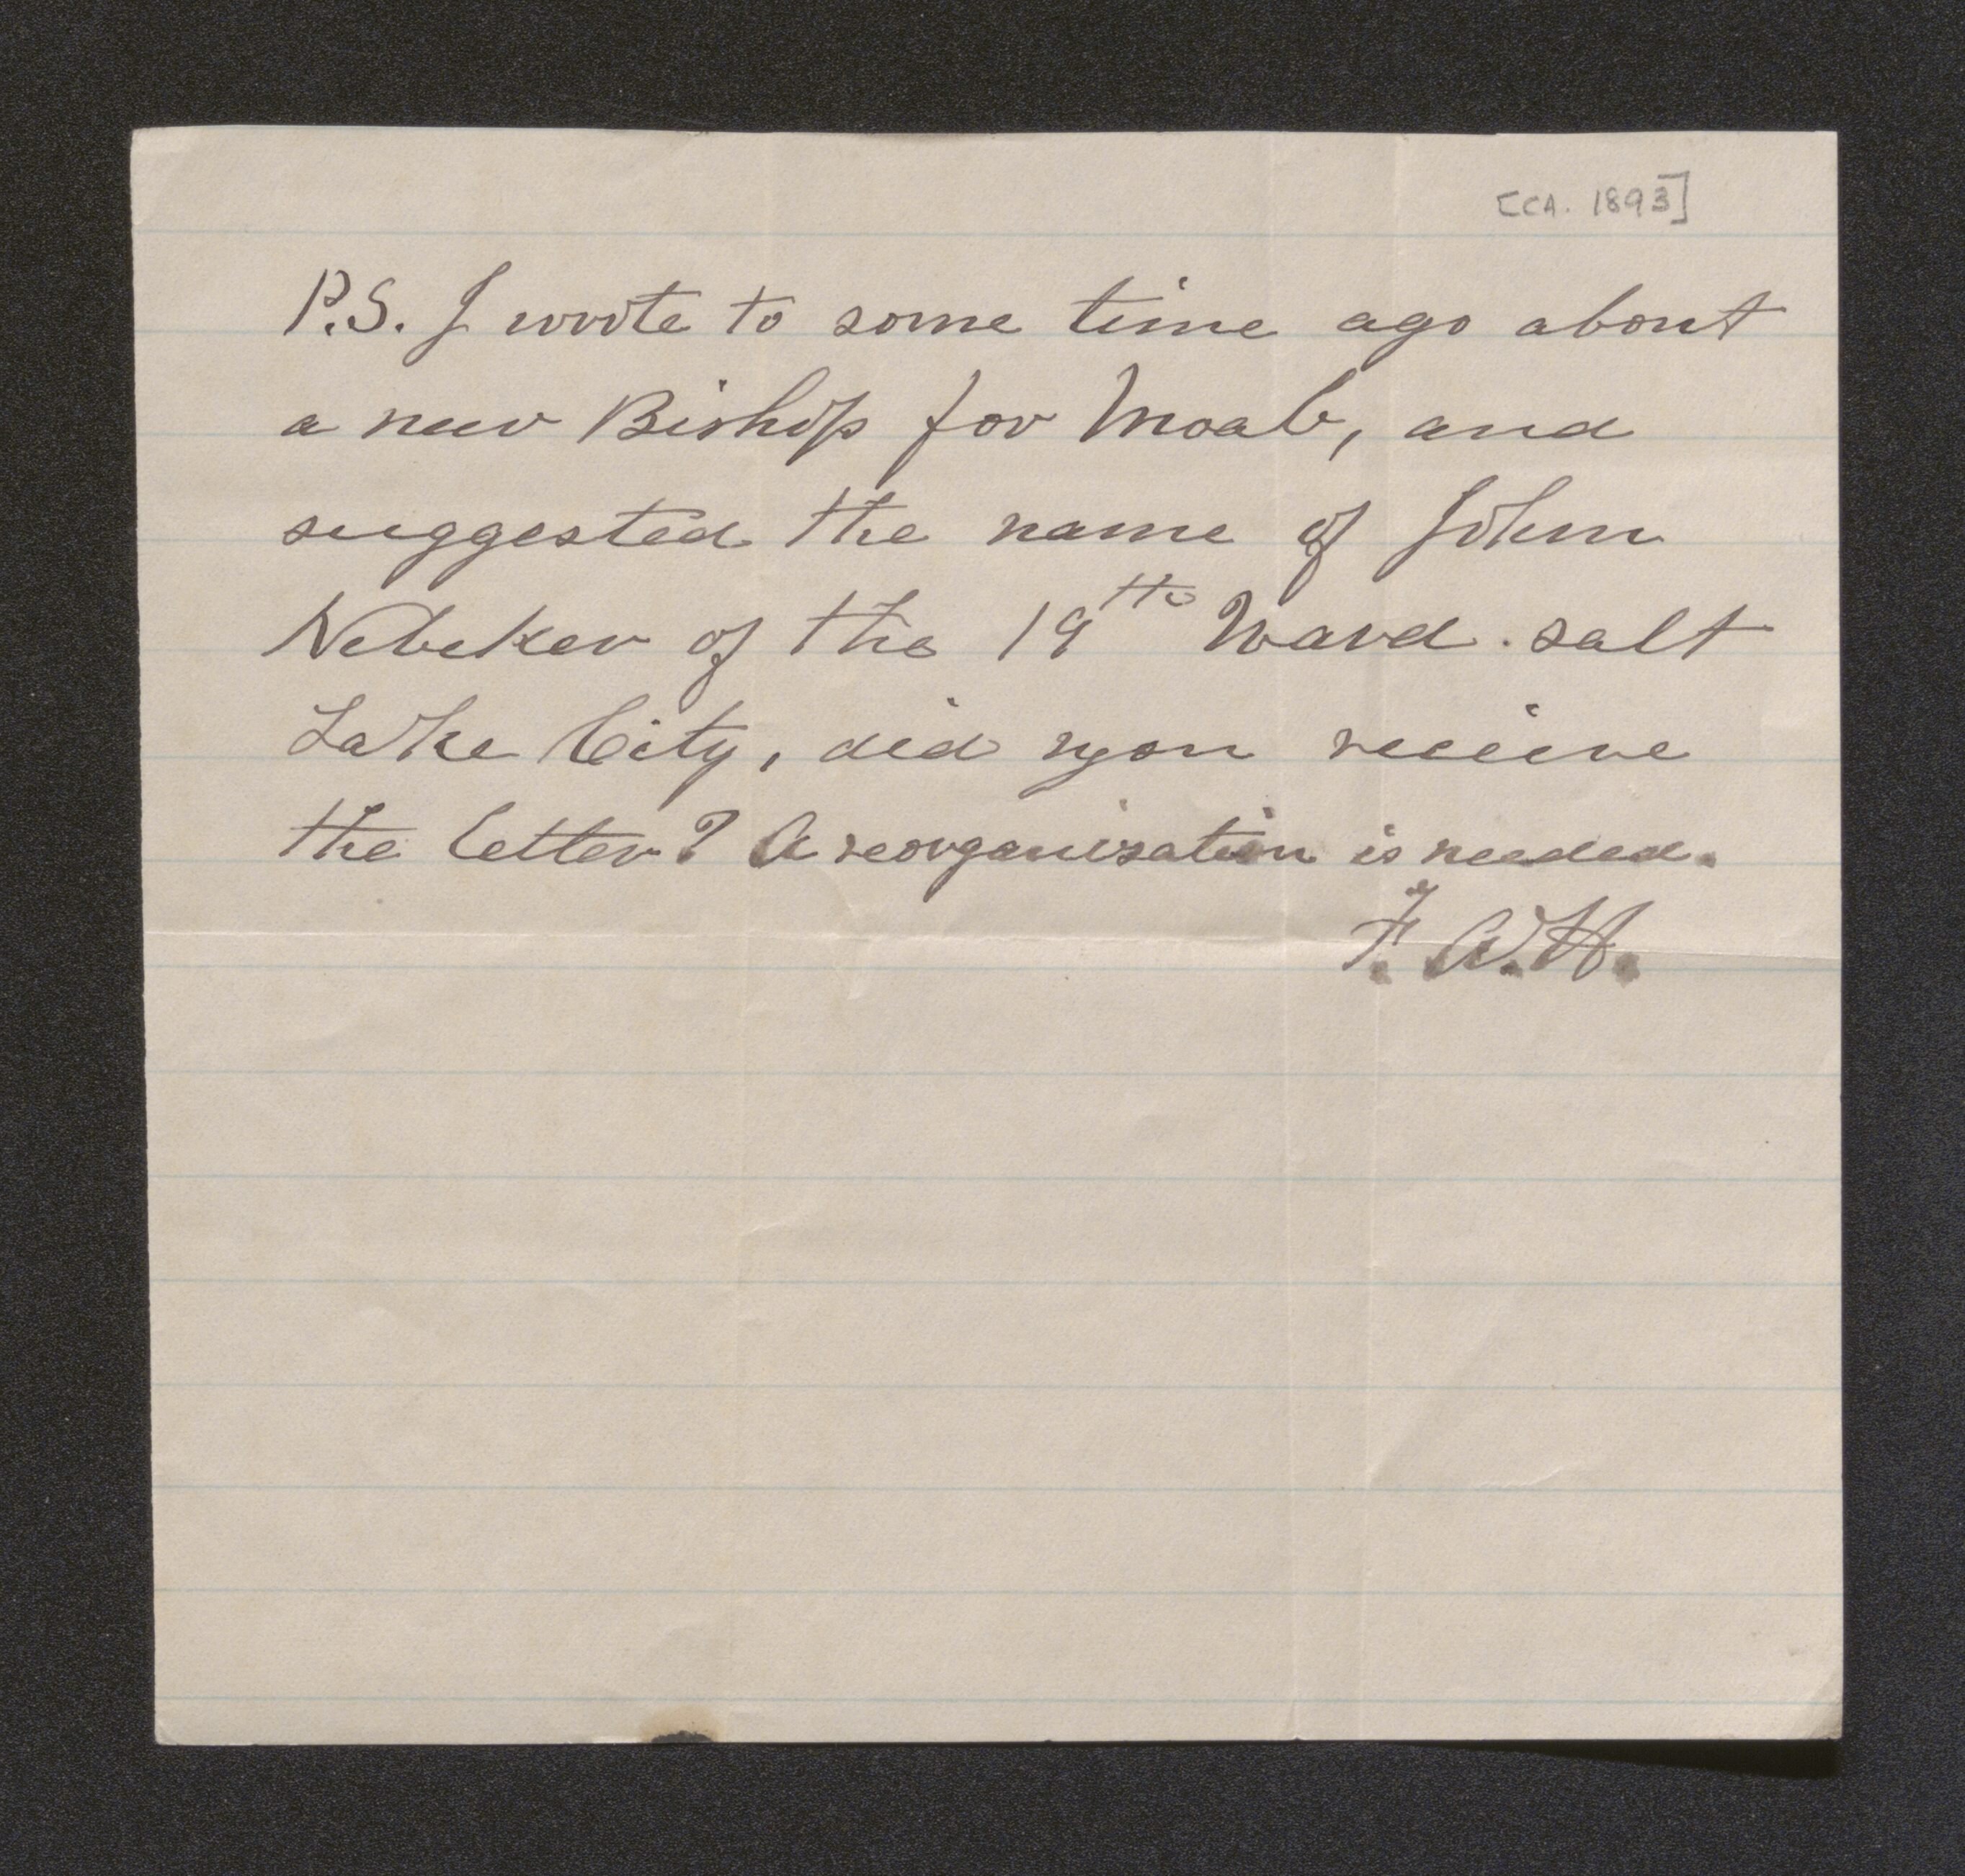 [CA. 1893]
P.S. I wrote to some time ago about
a new Bishop for Moab, and
suggested the name of John
Nebeker of the 19th Ward. salt
Lake City, did you recieve
the letter? A reorganization is needed.
F. A. H.